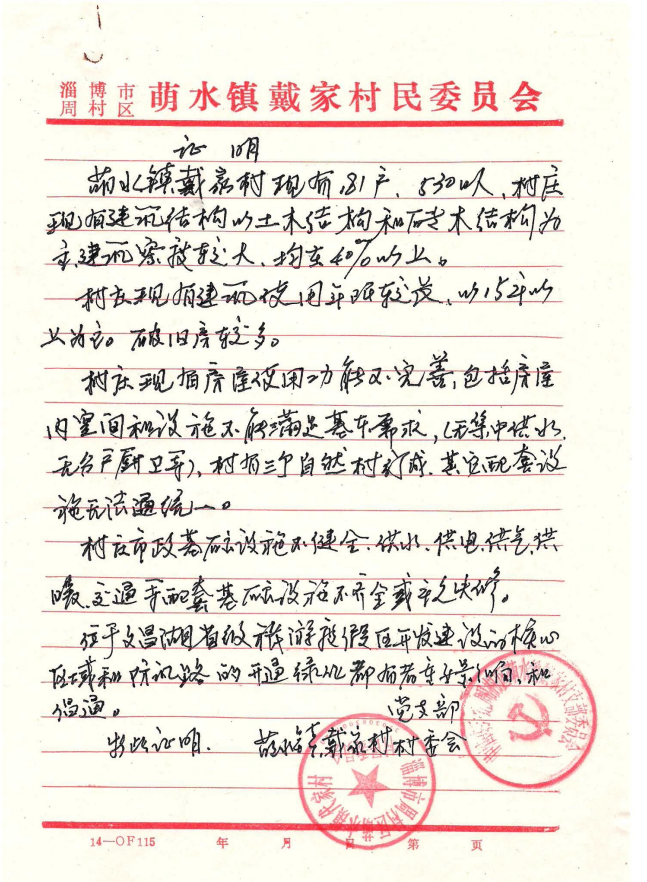 淄博市
周村区 萌水镇戴家村民委员会
证明
萌水镇戴家村现有181户、530口人、村庄
现有建筑结构以土木结构和砖木结构为
主,建筑密度较大、均在40%以上。
村庄现有建筑使用年限较长,以15年以
上为主。破旧房较多。
村庄现有房屋使用功能不完善,包括房屋
内空间和设施不能满足基本需求,(无集中供水,
无各户厨卫等),村有三个自然村组成,其它配套设
施无法通统一。
村庄市政基础设施不健全、供水、供电、供气、供
暖、交通等配套基础设施不齐全或年久失修。
位于文昌湖省级旅游度假区开发建设的核心
区域和防汛路的开通绿化都有着重要影响,和
沟通。
党支部
特此证明. 萌水镇戴家村村委会
14—OF115 年 月 日 第 页